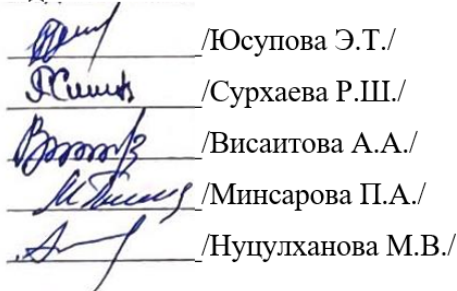 /Юсупова Э.Т./
/Сурхаева Р.Ш./
/Висаитова А.А./
/Минсарова П.А./
/Нуцулханова М.В./